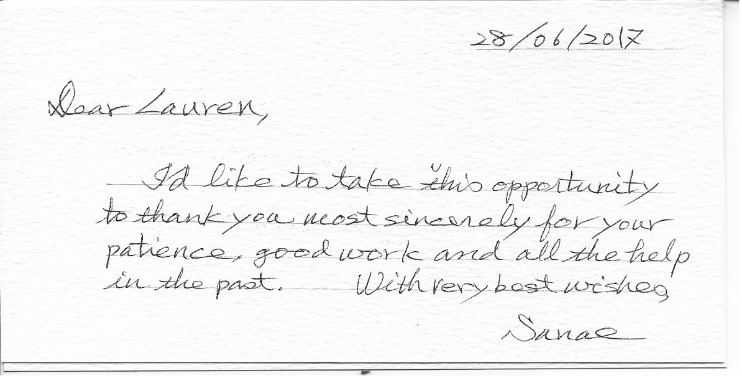 28/06/2017
Dear Lauren,
I'd like to take this opportunity
to thank you most sincerely for your
patience, good work and all the help
in the past. With very best wishes,
Sanae